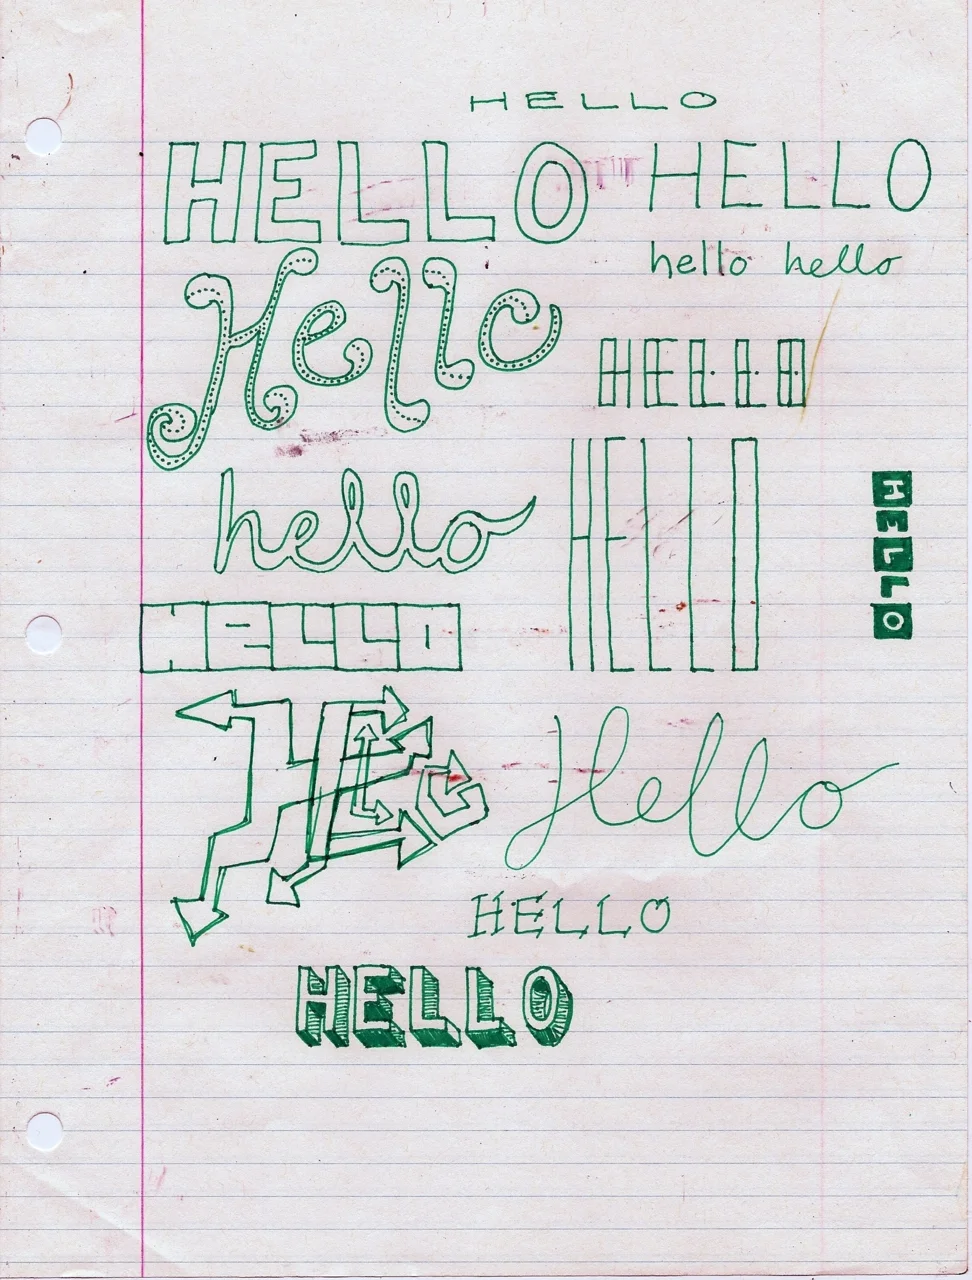 HELLO
HELLO HELLO
hello hello
Hello
HELLO
HELLO
hello
HELLO
HELLO
Hello
HELLO
HELLO